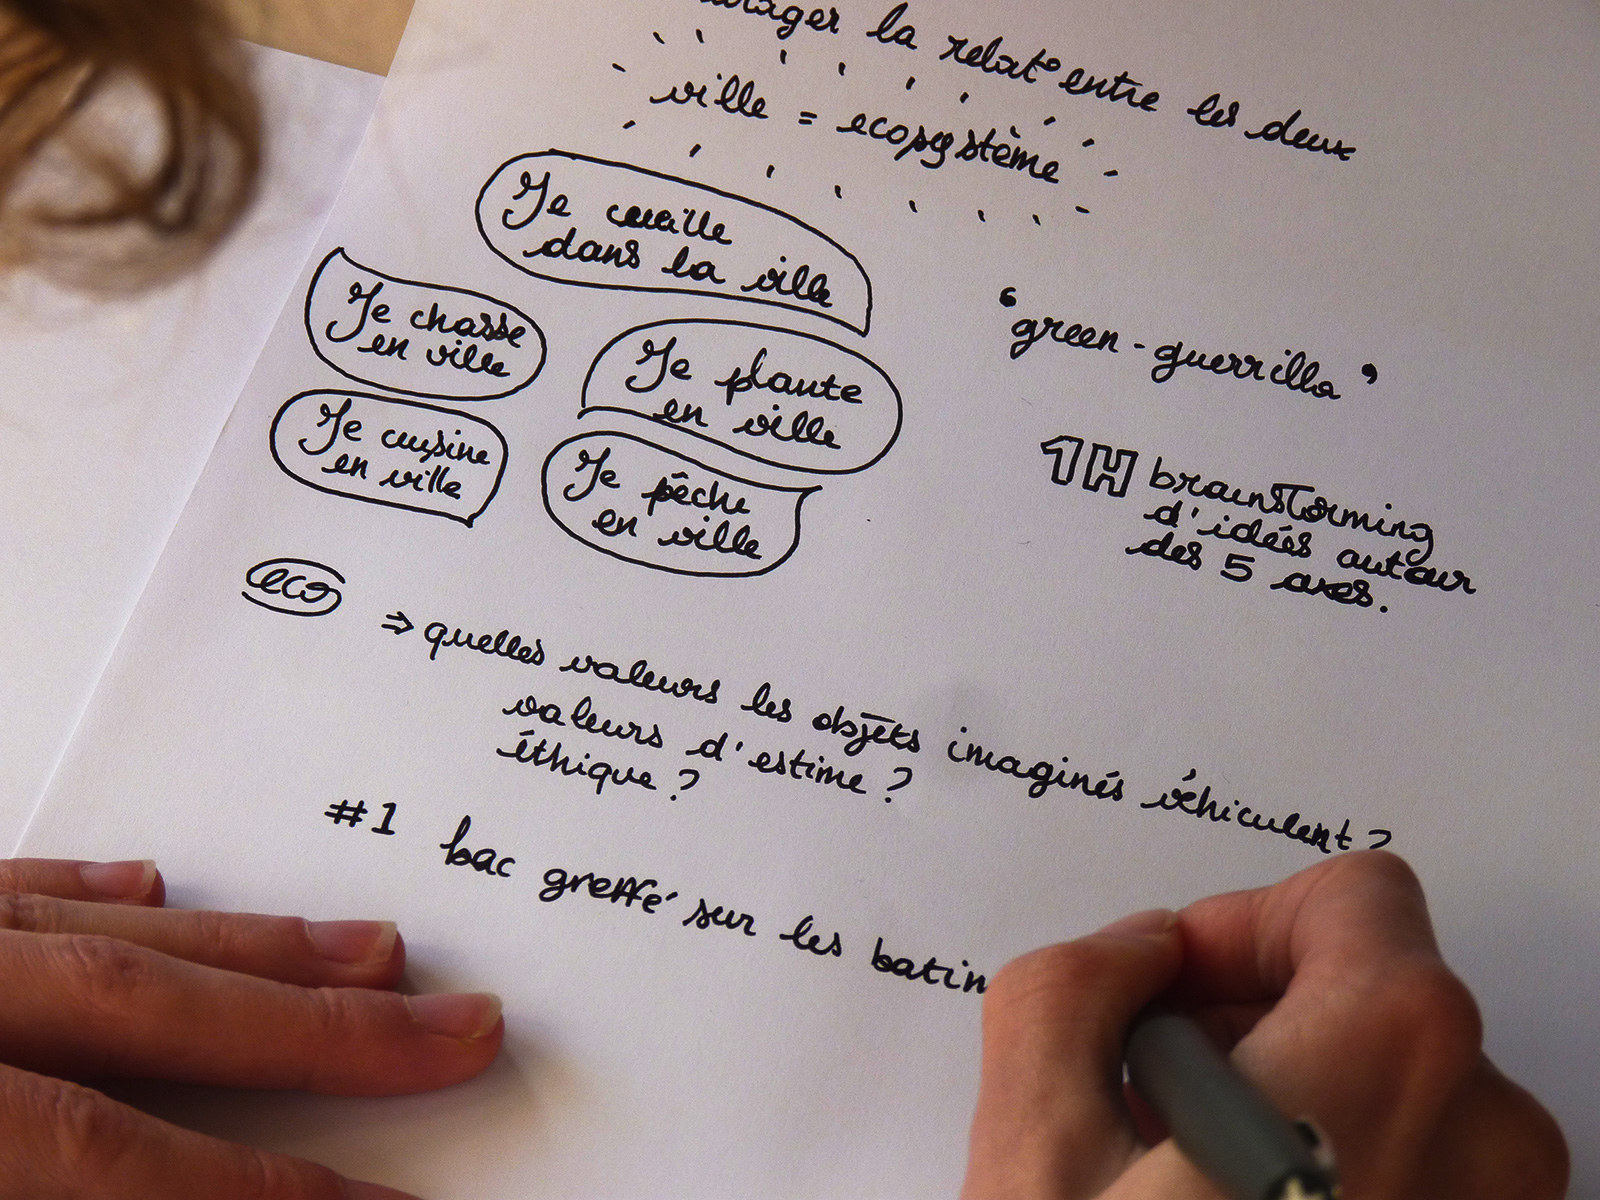 la relat° entre les deux
ville = ecosystème
Je cueille
dans la ville
Je chasse
en ville
Je plante
en ville
Je cuisine
en ville
Je pêche
en ville
"green-guerrilla"
1H brainstorming
d'idées autour
des 5 axes.
eco
⇒ quelles valeurs les objets imaginés véhiculent ?
valeurs d'estime ?
éthique ?
#1 bac greffé sur les batim